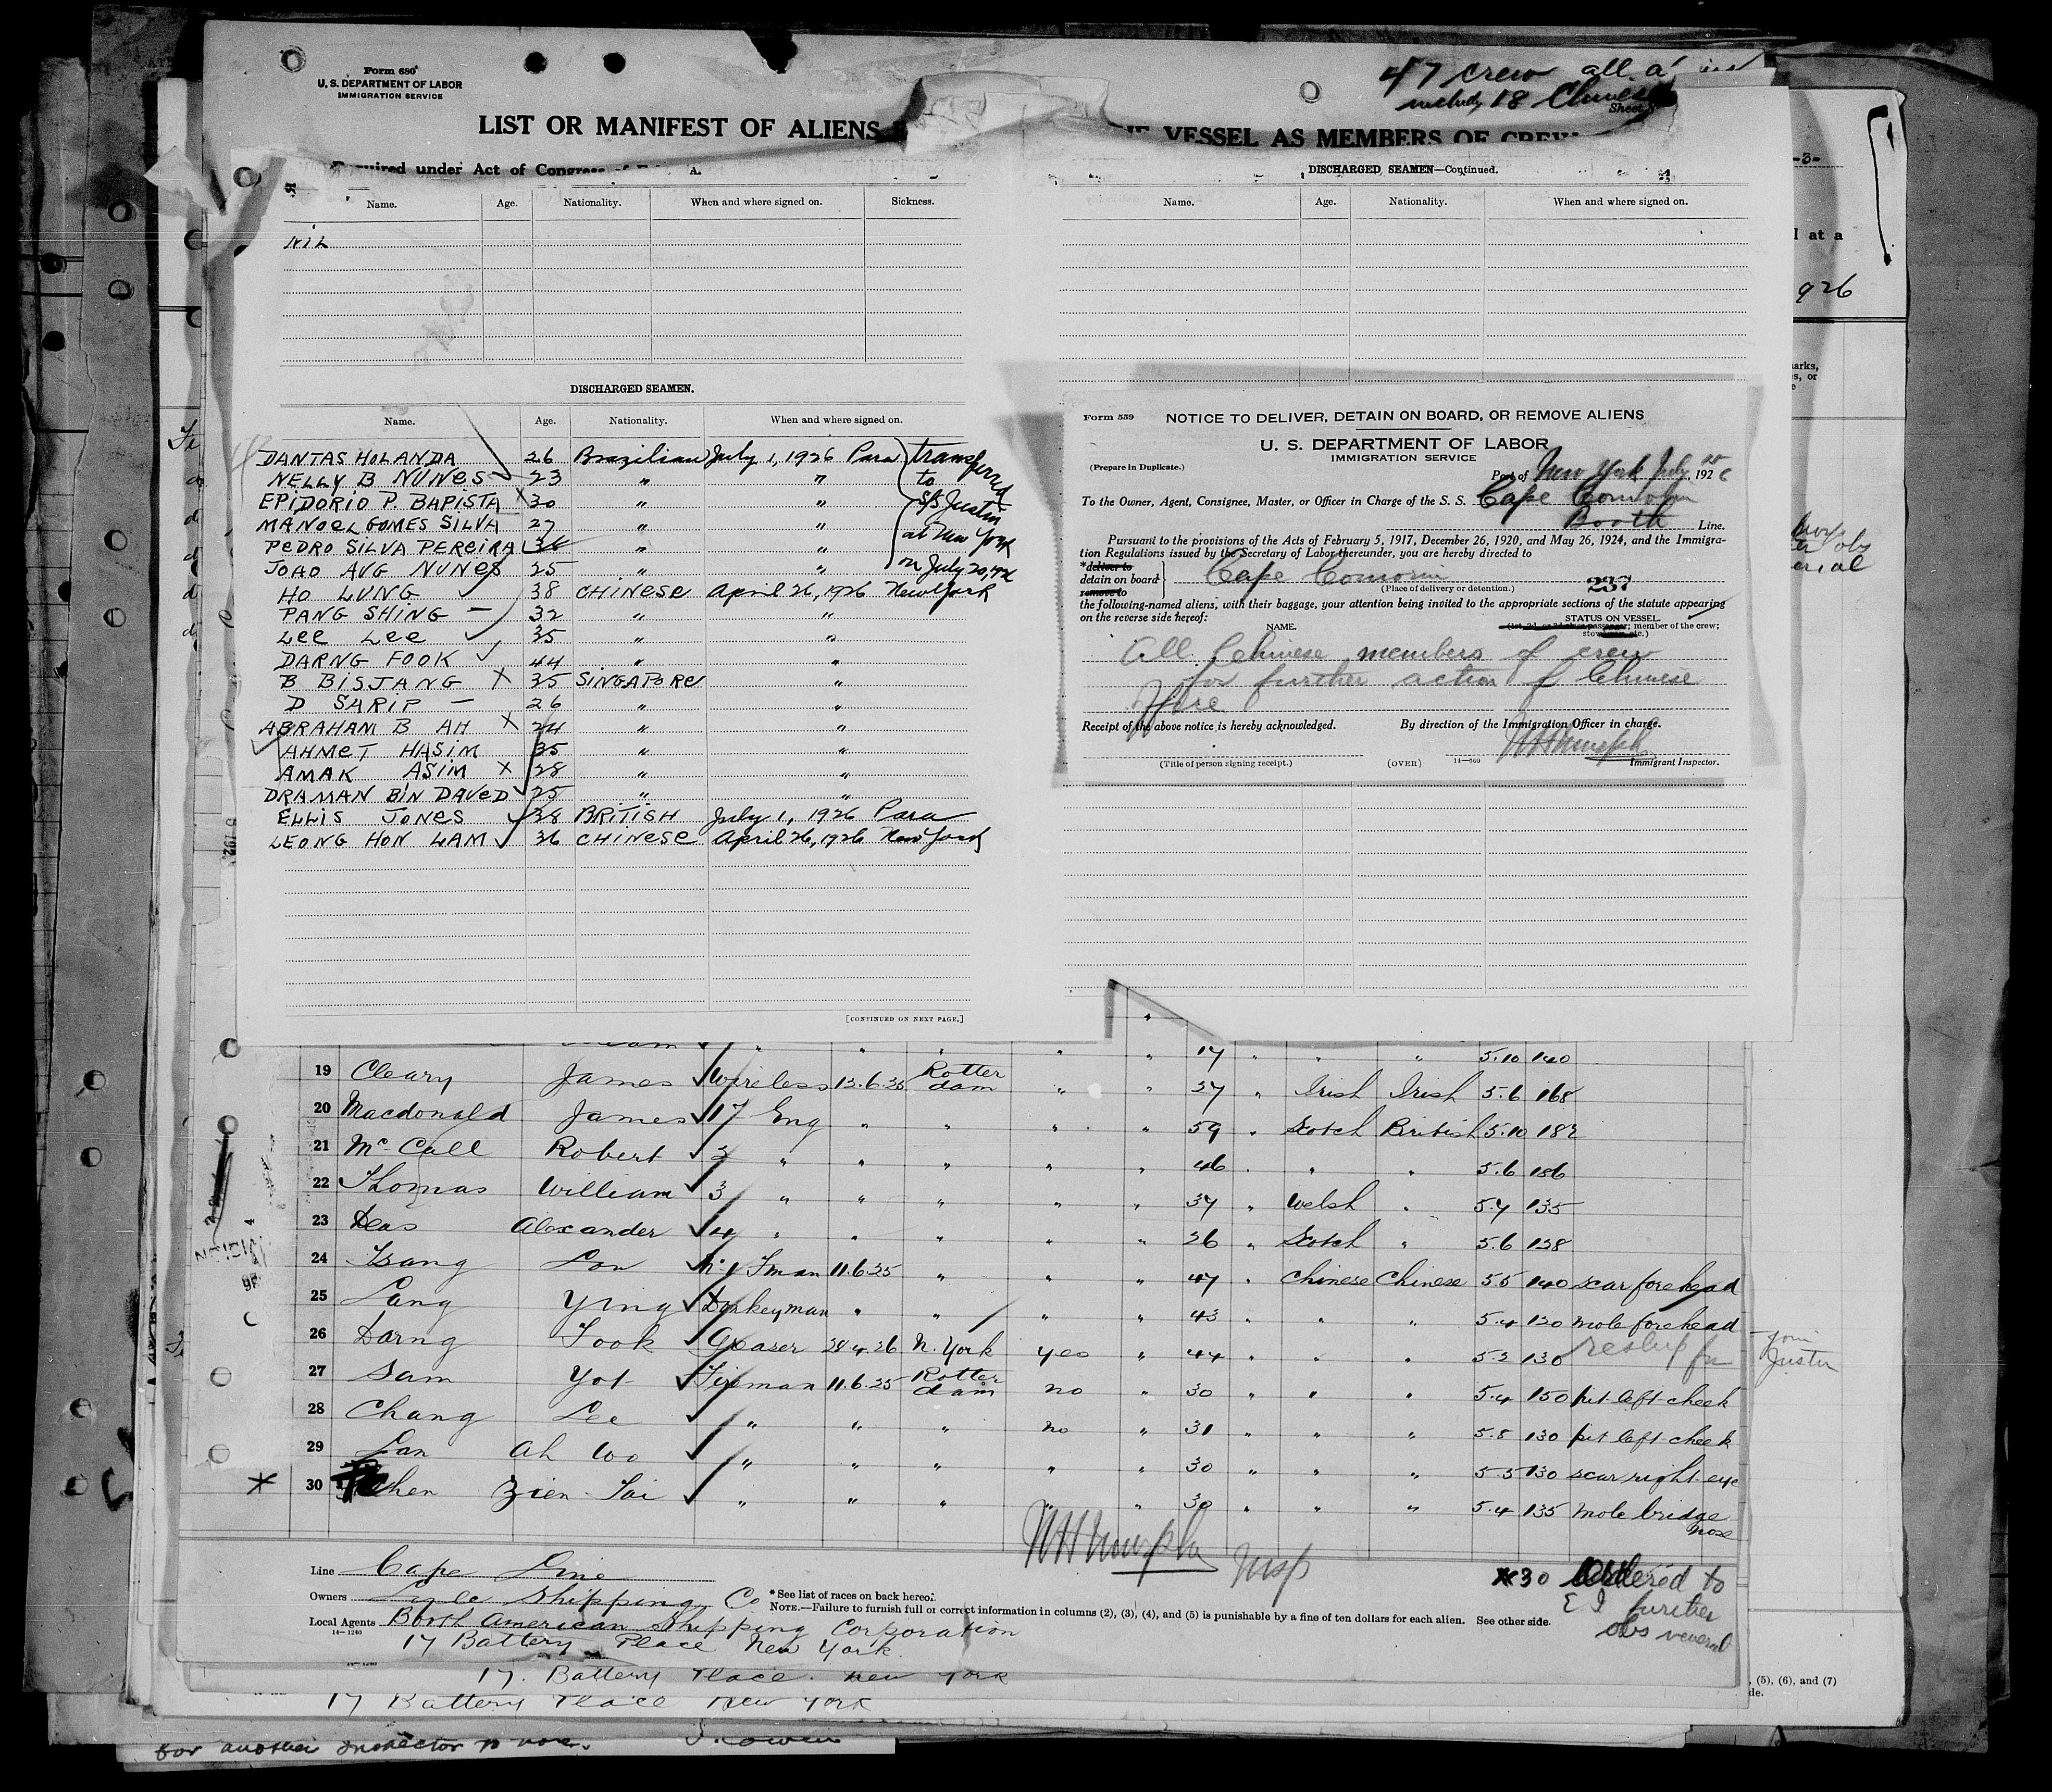 Form 680
U. S. DEPARTMENT OF LABOR
IMMIGRATION SERVICE
47 crew all
includg 18 Chinese
Sheet
LIST OR MANIFEST OF ALIENS
VESSEL AS MEMBERS OF CREW
Required under Act of Congress of
A.
Name. Age. Nationality. When and where signed on. Sickness.
NIL
DISCHARGED SEAMEN.
Name. Age. Nationality. When and where signed on.
DANTAS HOLANDA 26 Brazilian July 1, 1926 Para transferred
NELLY B NUNES 23 " " to
EPIDORIO P. BAPISTA X 30 " " S/S Justin
MANOEL GOMES SILVA 27 " " at New York
PEDRO SILVA PEREIRA 36 " " on July 20, 1926
JOAO AUG NUNES 25 " "
HO LUNG 38 CHINESE April 26, 1926 New York
PANG SHING – 32 " "
LEE LEE 35 " "
DARNG FOOK 44 " "
B BISJANG X 35 SINGAPORE "
D SARIP – 26 " "
ABRAHAM B AH X 24 " "
AHMET HASIM 35 " "
AMAK ASIM X 28 " "
DRAMAN BIN DAVED 25 " "
ELLIS JONES 38 BRITISH July 1, 1926 Para
LEONG HON LAM 36 CHINESE April 26, 1926 New York
[CONTINUED ON NEXT PAGE.]
DISCHARGED SEAMEN—Continued.
Name. Age. Nationality. When and where signed on.
Form 559 NOTICE TO DELIVER, DETAIN ON BOARD, OR REMOVE ALIENS
U. S. DEPARTMENT OF LABOR
IMMIGRATION SERVICE
(Prepare in Duplicate.)
Port of New York July 20 1926
To the Owner, Agent, Consignee, Master, or Officer in Charge of the S. S. Cape Comorin
Booth Line.
Pursuant to the provisions of the Acts of February 5, 1917, December 26, 1920, and May 26, 1924, and the Immigra-
tion Regulations issued by the Secretary of Labor thereunder, you are hereby directed to
*deliver to
detain on board Cape Comorin 237
remove to
(Place of delivery or detention.)
the following-named aliens, with their baggage, your attention being invited to the appropriate sections of the statute appearing
on the reverse side hereof:
NAME. STATUS ON VESSEL.
(1st, 2d, or 3d class passenger; member of the crew;
stowaway, etc.)
All Chinese members of crew
for further action of Chinese
Receipt of the above notice is hereby acknowledged. By direction of the Immigration Officer in charge.
(Title of person signing receipt.) (OVER) 14—560 Immigrant Inspector.
-3-
l at a
926
17 " " " 5.10 140
19 Cleary James Wireless 12.6.25 Rotterdam " " 27 " Irish Irish 5.6 168
20 Macdonald James 1st Eng " " " " 59 " Scotch British 5.10 182
21 McCall Robert 2 " " " " " 46 " " " 5.6 186
22 Thomas William 3 " " " " " 37 " Welsh " 5.7 135
23 Deas Alexander 4 " " " " " 26 " Scotch " 5.6 138
24 Tsang Lon No 1 Fman 11.6.25 " " " 47 " Chinese Chinese 5.5 140 scar forehead
25 Lang Ying Donkeyman " " " " 43 " " " 5.4 120 mole forehead
26 Darng Fook Greaser 28.4.26 N. York yes " 44 " " " 5.2 130
27 Sam Yot Fireman 11.6.25 Rotterdam no " 30 " " " 5.4 150 pit left cheek
28 Chang Lee " " " no " 31 " " " 5.8 130 pit left cheek
29 Lan Ah Woo " " " " " 30 " " " 5.5 130 scar right eye
30 Chen Zien Tai " " " " " 30 " " " 5.4 135 mole bridge nose
Line Cape Line
Owners Lyle Shipping Co
Local Agents Booth American Shipping Corporation
14—1240
17 Battery Place New York
* See list of races on back hereof.
NOTE.—Failure to furnish full or correct information in columns (2), (3), (4), and (5) is punishable by a fine of ten dollars for each alien. See other side.
Insp
*30 Ordered to
E I further
obs venereal
17. Battery Place. New York
17 Battery Place New York
, (5), (6), and (7)
de.
for another Inspector